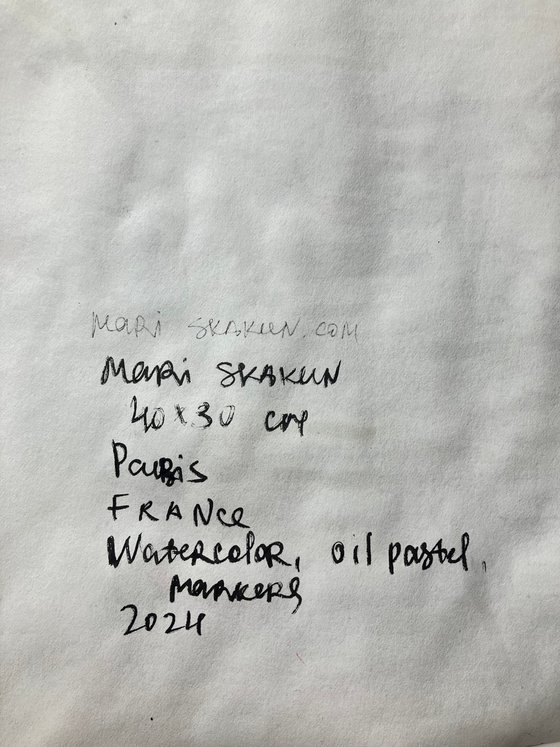 Mari Skakun.com
Mari Skakun
40x30 cm
Paris
France
Watercolor, oil pastel,
markers
2024